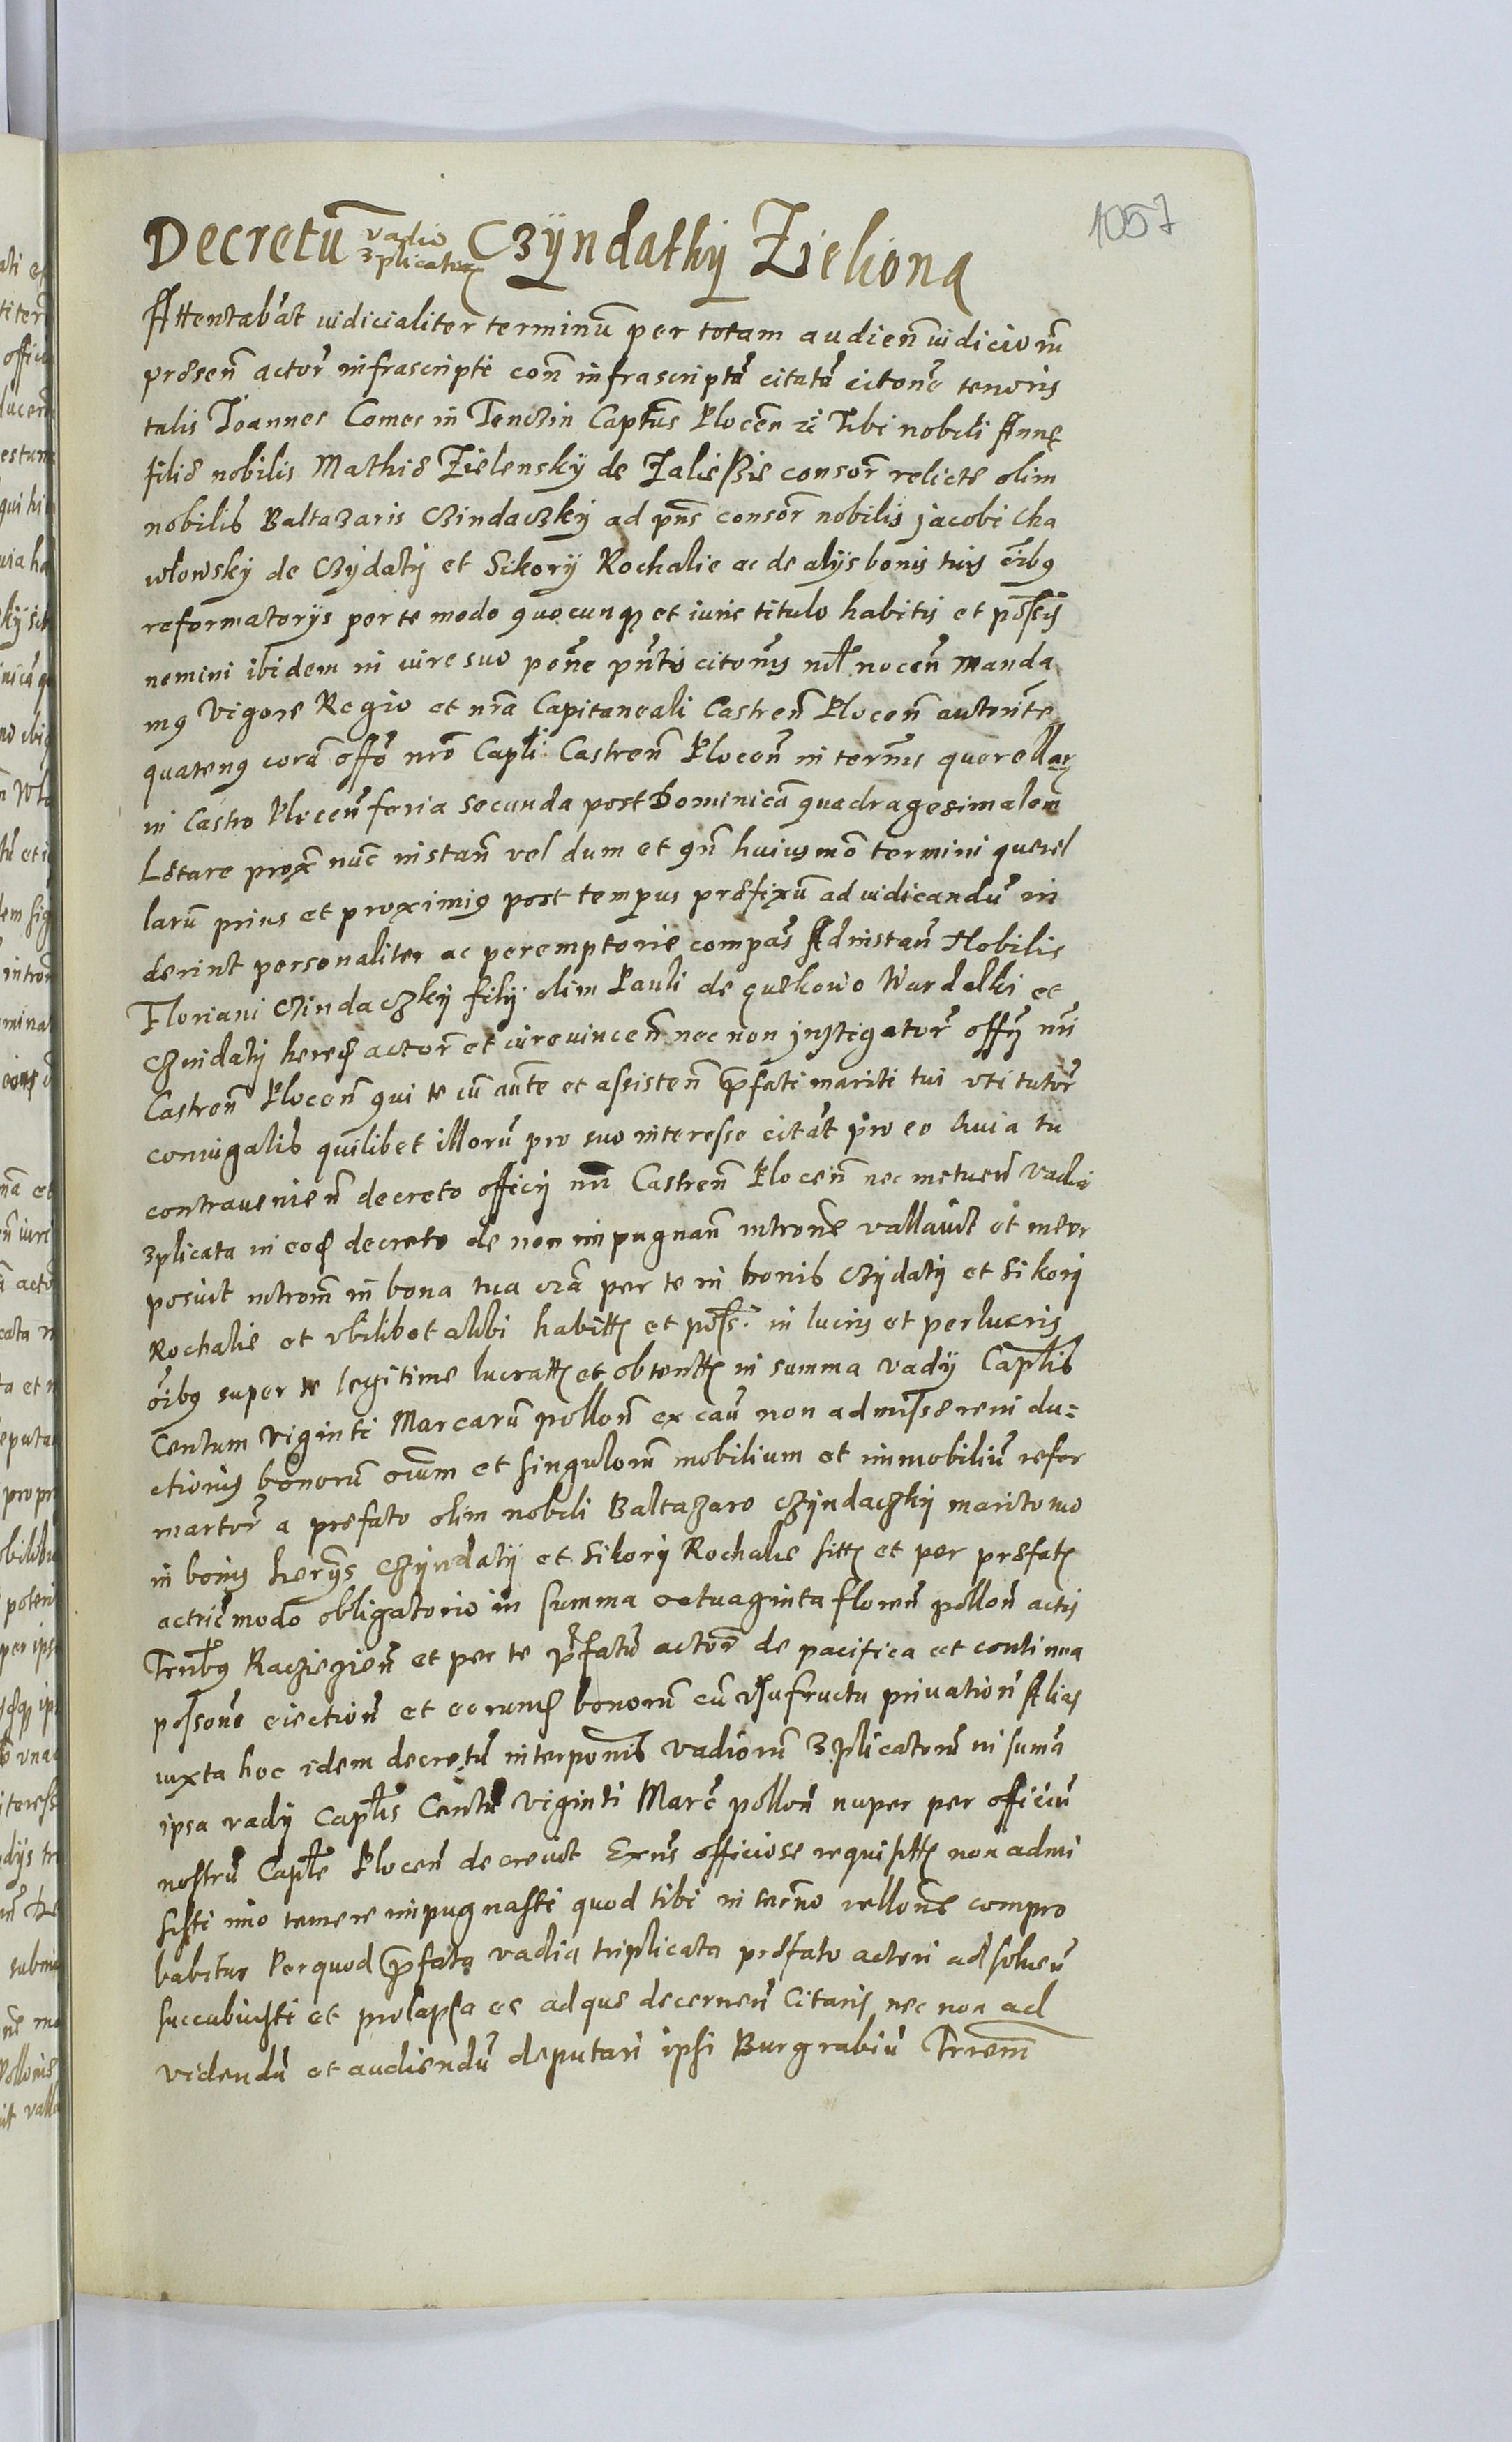 1057
Decretũ vadio 3plicatorũ Czÿndathÿ Zieliona
Attentabãt iudicialiter terminũ per totam audienñ iudiciorũ
presenñ actor̃ infrascripti conñ infrascriptã citatã citonẽ tenoris
talis Joannes Comes in Tenczin Captũs Plocenñ zc Tibi nobili Annę
filie nobilis Mathie Zielenskÿ de Zalieszie consor̃ relicte olim
nobilis Baltazaris Czindaczkÿ ad pñs consor̃ nobilis jacobi Cha
włowskÿ de Czÿdatÿ et Sikorÿ Rochalie ac de alÿs bonis tuis õibꝰ
reformatorÿs per te modo quocunqꝫ et iuris titulo habitis et poss̃is
nemini ibidem in iure suo ponẽ pñti citonĩs nil nocenñ manda
mꝰ Vigore Regio et nr̃a Capitaneali Castrenñ Plocenñ autoritẽ
quatenꝰ corã offõ nr̃o Capli Castrenñ Plocenñ in termĩs querellarũ
in Castro Plocenñ feria secunda post Dominicã quadragesimalem
Letare prox̃ nũc instanñ vel dum et qñ huiusmõ termini querel
larũ prius et proximiꝰ post tempus prefixũ ad iudicandũ in
derint personaliter ac peremptorie compas̃ Ad instanñ Nobilis
Floriani Czindaczkÿ filÿ olim Pauli de gulkowo Wardalki et
Czindatÿ hered̃ actor̃ et iure vincenñ nec non jnstigator̃ offÿ nr̃i
Castrenñ Plocenñ qui te cũ autẽ et assistenñ p̃fati mariti tui vti tutor̃
coniugalis quilibet illorũ pro suo interesse citãt pro eo Quia tu
contrauenienñ decreto officÿ nr̃i Castrenñ Plocenñ nec metuenñ vadia
3plicata in eod̃ decreto de non impugnanñ intronẽ vallauit et inter
posuit introm̃ in bona tua oĩa per te in bonis Czÿdatÿ et Sikorÿ
Rochalie et vbilibet alibi habitt̃ et poss̃. in lucris et perlucris
õibꝰ super te legitime lucratt̃ et obtentt̃ in summa vadÿ Capl̃is
Centum Viginti Marcarũ pollonñ ex cau̇s̃ non admisse reni du=
ctionis bonorũ oĩum et singulorũ mobilium et immobiliũ refor
mator̃ a prefato olim nobili Baltazaro Czÿndaczkÿ marito tuo
in bonis herÿs Czÿndatÿ et Sikorÿ Rochalie sitt̃ et per prefatt̃
actric̃ modo obligatorio in summa octuaginta florenñ pollonñ actis
Trñbꝰ Raczieziensñ et per te p̃fatũ actor̃ de pacifica et continua
possonẽ eiectionñ et eorumd̃ bonorũ cũ vsufructu priuationñ Alias
iuxta hoc idem decretũ interponis̃ vadiorũ 3plicatorũ in sumã
ipsa vadÿ Capl̃is Centũ Viginti Marc̃ pollonñ nuper per officiũ
nostrũ Caplẽ Plocenñ decreuit Exñs officiose requisitt̃ non admi
sisti imo temere impugnasti quod tibi in termõ rellonẽ compro
babitur Per quod p̃fata vadia triplicata prefato actori ad soluenñ
succubuisti et prolapsa es ad que decernenñ Citaris nec non ad
videndũ et audiendũ deputari ipsi Burgrabiũ Trrem̃